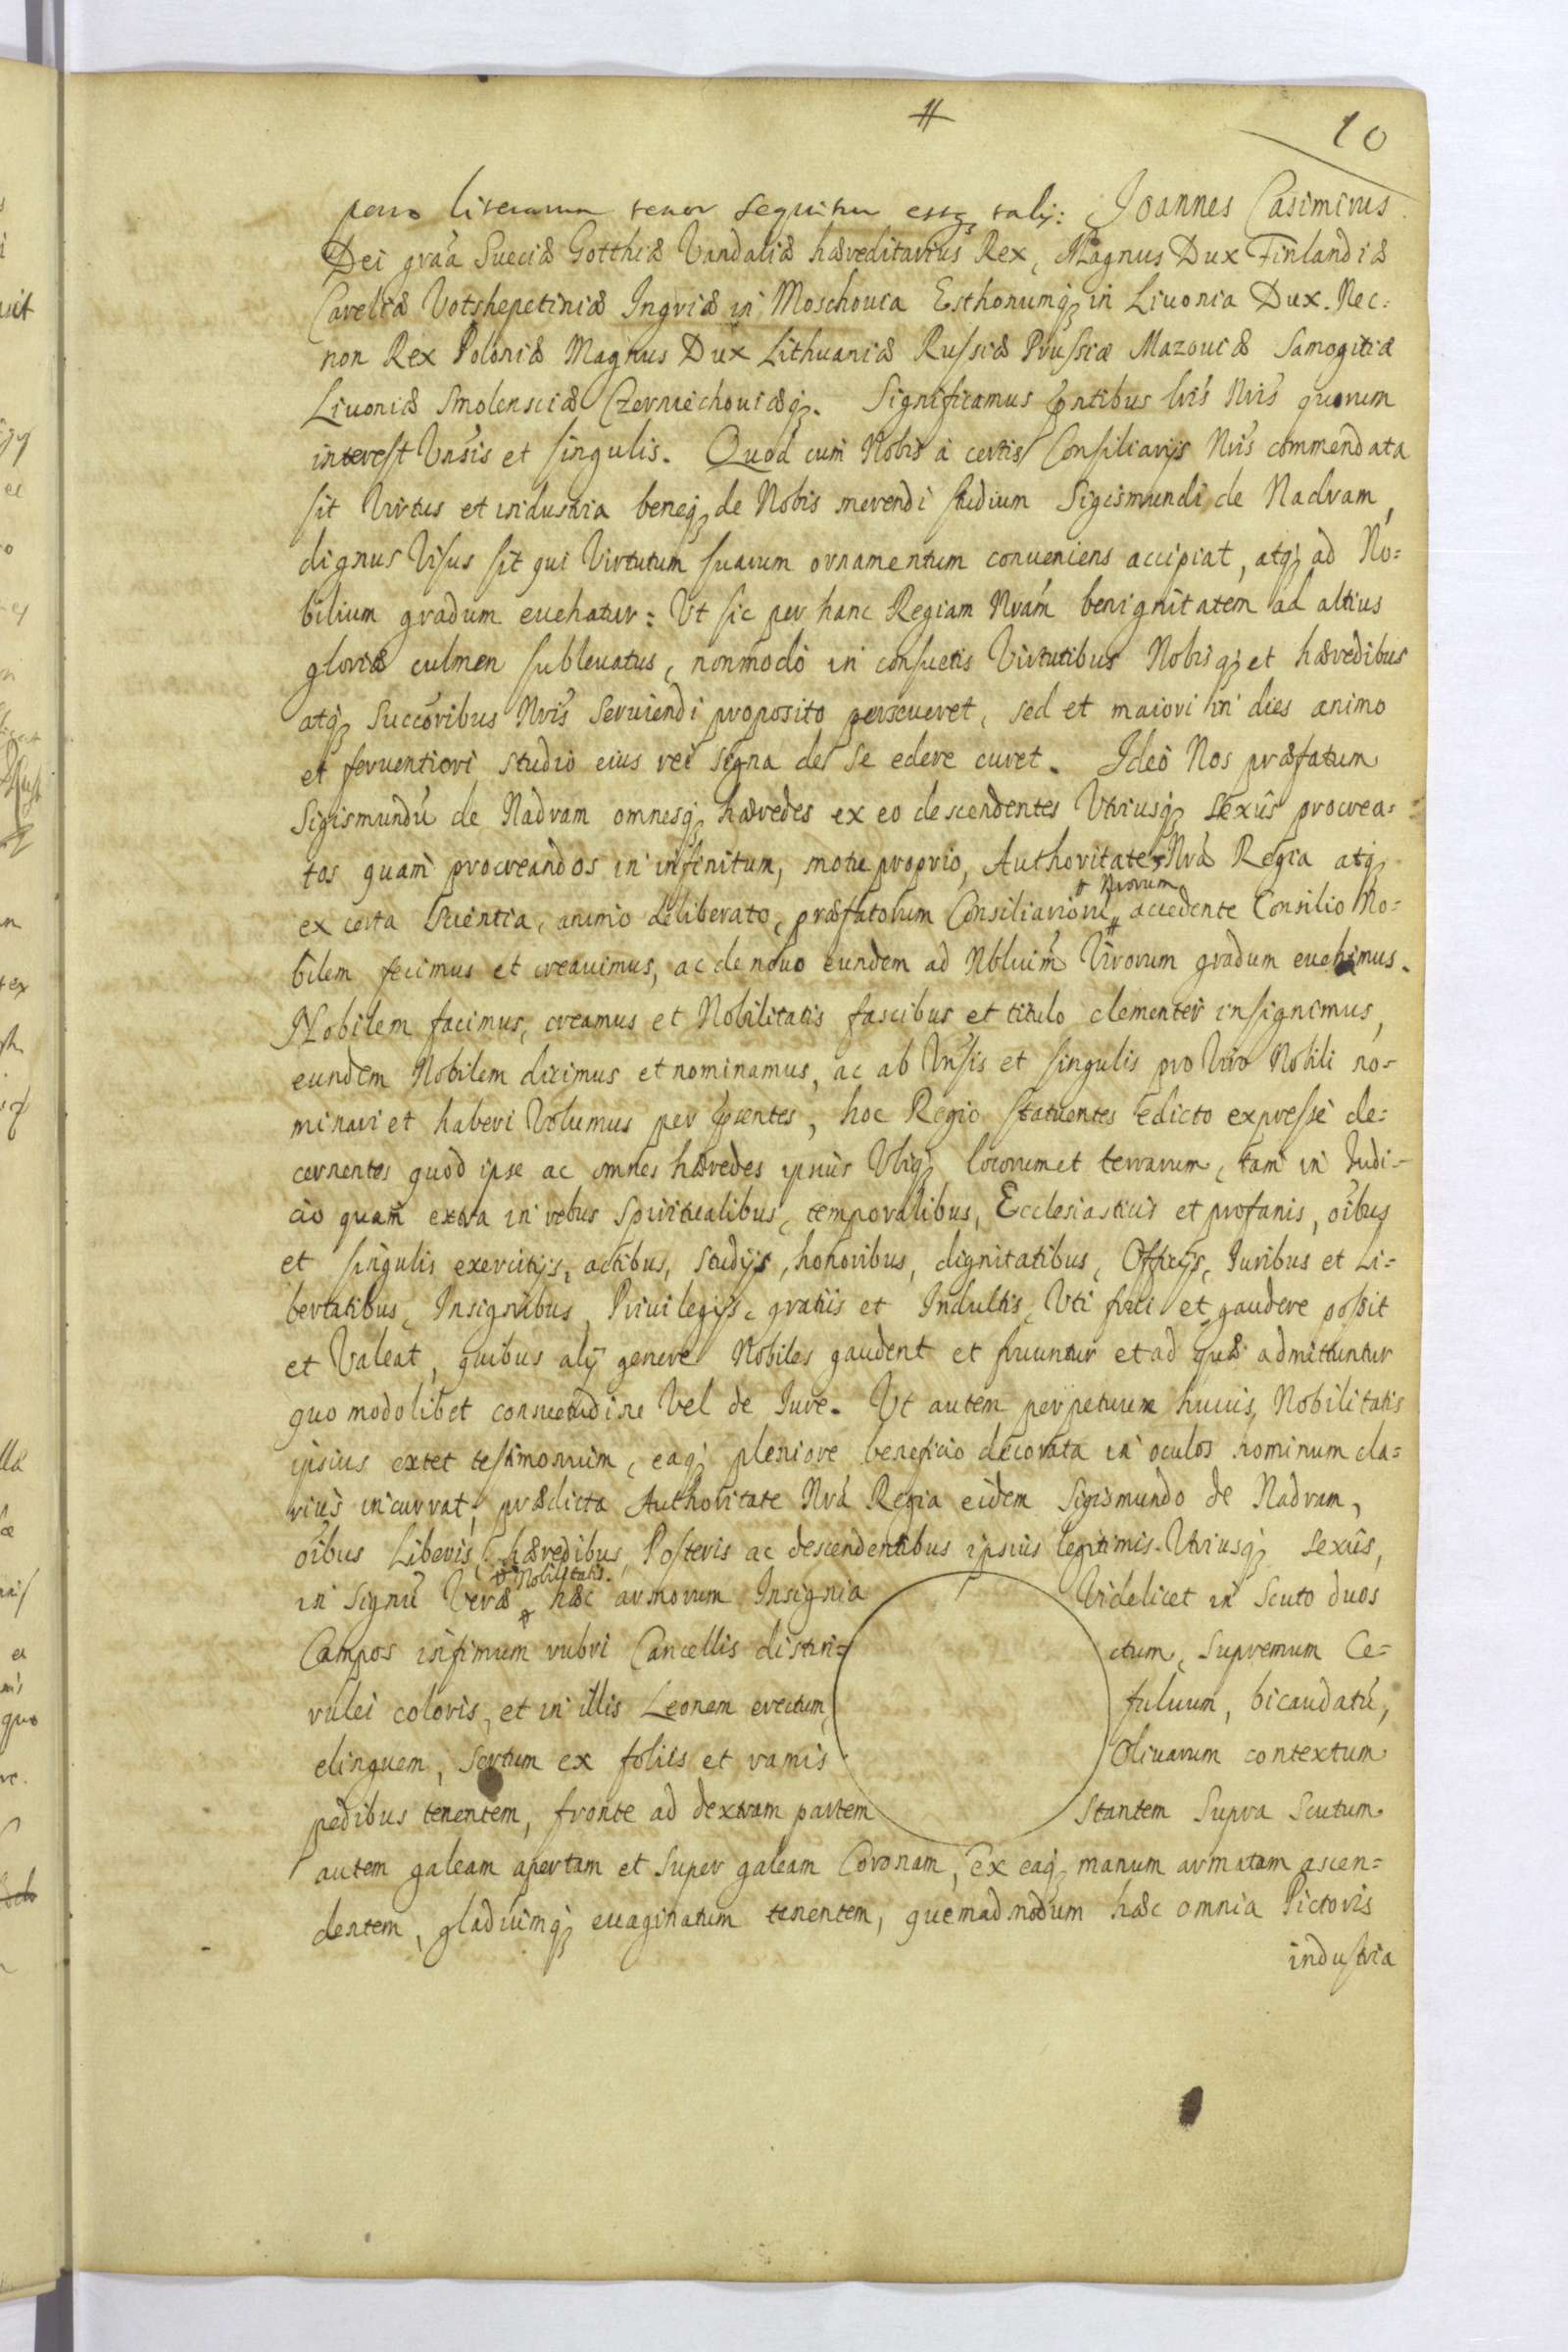 #
10
porro literarum tenor sequitur estq; talis: Joannes Casimirus
Dei graã Sueciæ Gotthiæ Vandaliæ hæreditarius Rex, Magnus Dux Finlandiæ
Careliæ Votshepetiniæ Ingriæ in Moschouia Esthonumq; in Liuonia Dux. Nec=
non Rex Poloniæ Magnus Dux Lithuaniæ Russiæ Prussiæ Mazouiæ Samogitiæ
Liuoniæ Smolensciæ Czerniechouiæq;. Significamus pñtibus lris Nris quorum
interest Vnsis et singulis. Quod cum Nobis à certis Consiliarijs Nris commendata
sit Virtus et industria beneq; de Nobis merendi studium Sigismundi de Nadram,
dignus Visus sit qui Virtutum suarum ornamentum conueniens accipiat, atq; ad No=
bilium gradum euehatur: Vt sic per hanc Regiam Nram benignitatem ad altius
gloriæ culmen subleuatus, nonmodò in consuetis Virtutibus Nobisq; et hæredibus
atq; Succoribus Nris Seruiendi proposito perseueret, sed et maiori in dies animo
et feruentiori studio eius rei signa de se edere curet. Ideò Nos præfatum
Sigismundũ de Nadram omnesq; hæredes ex eo descendentes Vtriusq; sexûs procrea=
tos quam procreandos in infinitum, motu proprio, Authoritate Nrâ Regia atq;
# Nrorum
ex certa scientia, animo deliberato, præfatorum Consiliariorũ # accedente Consilio No=
bilem fecimus et creauimus, ac de nouo eundem ad Nblium Virorum gradum euehimus.
Nobilem facimus, creamus et Nobilitatis fascibus et titulo clementer insignimus,
eundem Nobilem dicimus et nominamus, ac ab Vnsis et singulis pro Viro Nobili no=
minari et haberi Volumus per pñtes, hoc Regio statuentes edicto expressè de=
cernentes quod ipse ac omnes hæredes ipsius Vbiq; locorum et terrarum, tam in Judi=
cio quam extra in rebus Spiritualibus, temporalibus, Ecclesiasticis et profanis, oibus
et singulis exercitijs, actibus, studijs, honoribus, dignitatibus, Officijs, Iuribus et Li=
bertatibus, Insignibus, Priuilegijs, gratiis et Indultis, Vti frui et gaudere possit
et Valeat, quibus alij genere Nobiles gaudent et fruuntur et ad quæ admittuntur
quo modolibet consuetudine Vel de Iure. Vt autem perpetuum huius Nobilitatis
ipsius extet testimonium, eaq; pleniore beneficio decorata in oculos hominum cla=
rius incurrat, prædicta Authoritate Nrâ Regia eidem Sigismundo de Nadram,
oibus Liberis, hæredibus, Posteris ac descendentibus ipsius legitimis Vtriusq; sexûs,
# Nobilitatis.
in Signũ Veræ # hæc armorum Insignia Videlicet in Scuto duos
Campos infimum rubri Cancellis distin= ctum, Supremum Ce=
rulei coloris, et in illis Leonem erectum, fuluum, bicaudatũ,
elinguem, sertum ex foliis et ramis Oliuarum contextum
pedibus tenentem, fronte ad dextram partem Stantem Supra Scutum
autem galeam apertam et Super galeam Coronam, Ex eaq; manum armatam ascen=
dentem, gladiumq; euaginatum tenentem, quemadmodum hæc omnia Pictoris
industria